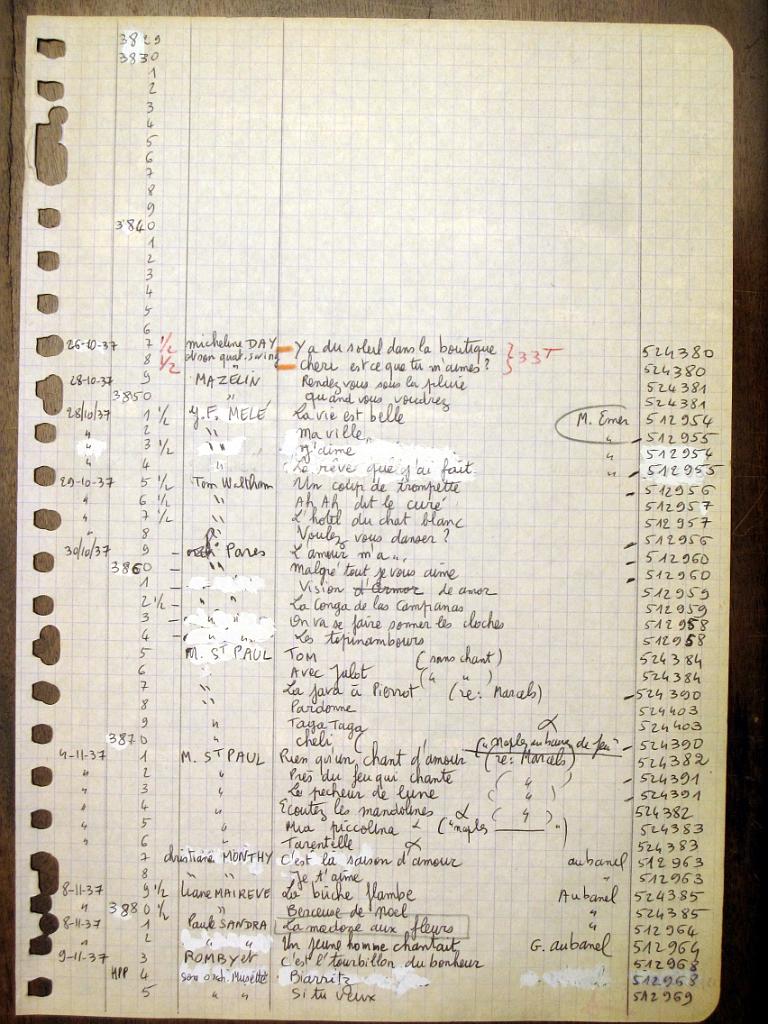 3829
3830
1
2
3
4
5
6
7
8
9
3840
1
2
3
4
5
6
26-10-37 7 1/2 micheline DAY Y a du soleil dans la boutique } 33T 524380
8 1/2 et son quat. swing cheri est ce que tu m'aimes? 524380
28-10-37 9 MAZELIN Rendez vous sous la pluie 524381
3850 " quand vous voudrez 524381
28/10/37 1 1/2 Y.F. MELÉ La vie est belle M. Emer 512954
" 2 " ma ville " 512955
" 3 1/2 " j'aime " 512954
" 4 " Le rêve que j'ai fait " 512955
29-10-37 5 1/2 Tom Waltham Un coup de trompette 512956
" 6 1/2 " Ah Ah dit le curé 512957
" 7 1/2 " L'hotel du chat blanc 512957
" 8 " Voulez vous danser? 512956
30/10/37 9 Pares L'amour m'a ,, 512960
3860 " " malgré tout je vous aime 512960
1 Vision de amor 512959
2 1/2 " " La Conga de las Campanas 512959
3 " " On va se faire sonner les cloches 512958
4 " " Les topinambours 512958
5 M. ST PAUL TOM (sans chant) 524384
6 " Avec Jalot (" ") 524384
7 " La java à Pierrot (re: Marcels) 524390
8 " Pardonne 524403
9 " Taga Taga 524403
3870 " cheli ( "naples au baiser de feu" 524390
4-11-37 1 M. ST PAUL Rien qu'un chant d'amour (re: Marcels) 524382
" 2 " Près du feu qui chante ( " ) 524391
" 3 " Le pecheur de lune ( " ) 524391
" 4 " Ecoutez les mandolines ( " ) 524382
" 5 " Mia piccolina ("naples ") 524383
" 6 " Tarentelle 524383
7 christiane MONTHY c'est la saison d'amour aubanel 512963
8 " " Je t'aime " 512963
8-11-37 9 1/2 Liane MAIREVE La bûche flambe Aubanel 524385
" 3880 1/2 " Berceuse de noel " 524385
8-11-37 1 Paule SANDRA La madone aux fleurs " 512964
" 2 " " Un jeune homme chantait G. aubanel 512964
9-11-37 3 ROMBY et c'est l'tourbillon du bonheur 512968
HPP 4 son orch. Musette Biarritz 512968
5 " " Si tu veux 512969